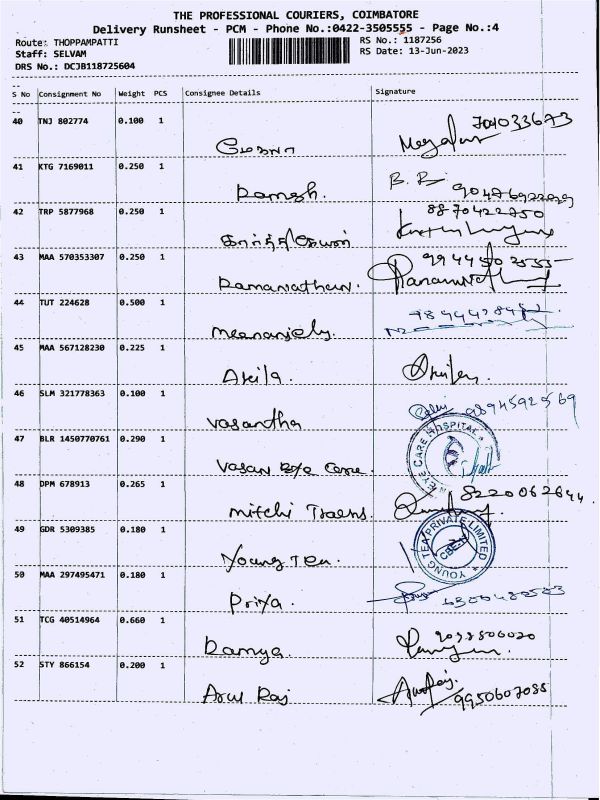 THE PROFESSIONAL COURIERS, COIMBATORE
Delivery Runsheet - PCM - Phone No.:0422-3505555 - Page No.:4
Route: THOPPAMPATTI RS No.: 1187256
Staff: SELVAM RS Date: 13-Jun-2023
DRS No.: DCJB118725604
--
S No Consignment No Weight PCS Consignee Details Signature
--
40 TNJ 802774 0.100 1
41 KTG 7169011 0.250 1 Ramesh.
42 TRP 5877968 0.250 1 8870422750
43 MAA 570353307 0.250 1 Ramanathan.
44 TUT 224628 0.500 1
45 MAA 567128230 0.225 1 Akila.
46 SLM 321778363 0.100 1 Vasantha
47 BLR 1450770761 0.290 1 Vasan Eye Care. EYE CARE HOSPITAL
48 DPM 678913 0.265 1 8220062644
49 GDR 5309385 0.180 1 Young Tea. YOUNG TEA PRIVATE LIMITED CBE-
50 MAA 297495471 0.180 1 Priya.
51 TCG 40514964 0.660 1 Ramya.
52 STY 866154 0.200 1 Arul Raj 9950607085